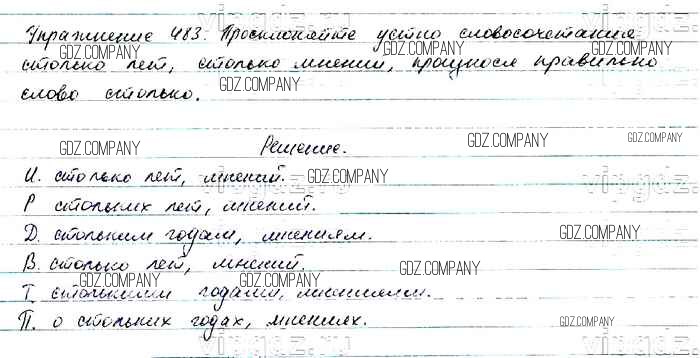 Упражнение 483. Просклоняйте устно словосочетания
столько лет, столько мнений, произнося правильно
слово столько.
Решение.
И. столько лет, мнений.
Р. стольких лет, мнений.
Д. стольким годам, мнениям.
В. столько лет, мнений.
Т. столькими годами, мнениями.
П. о стольких годах, мнениях.